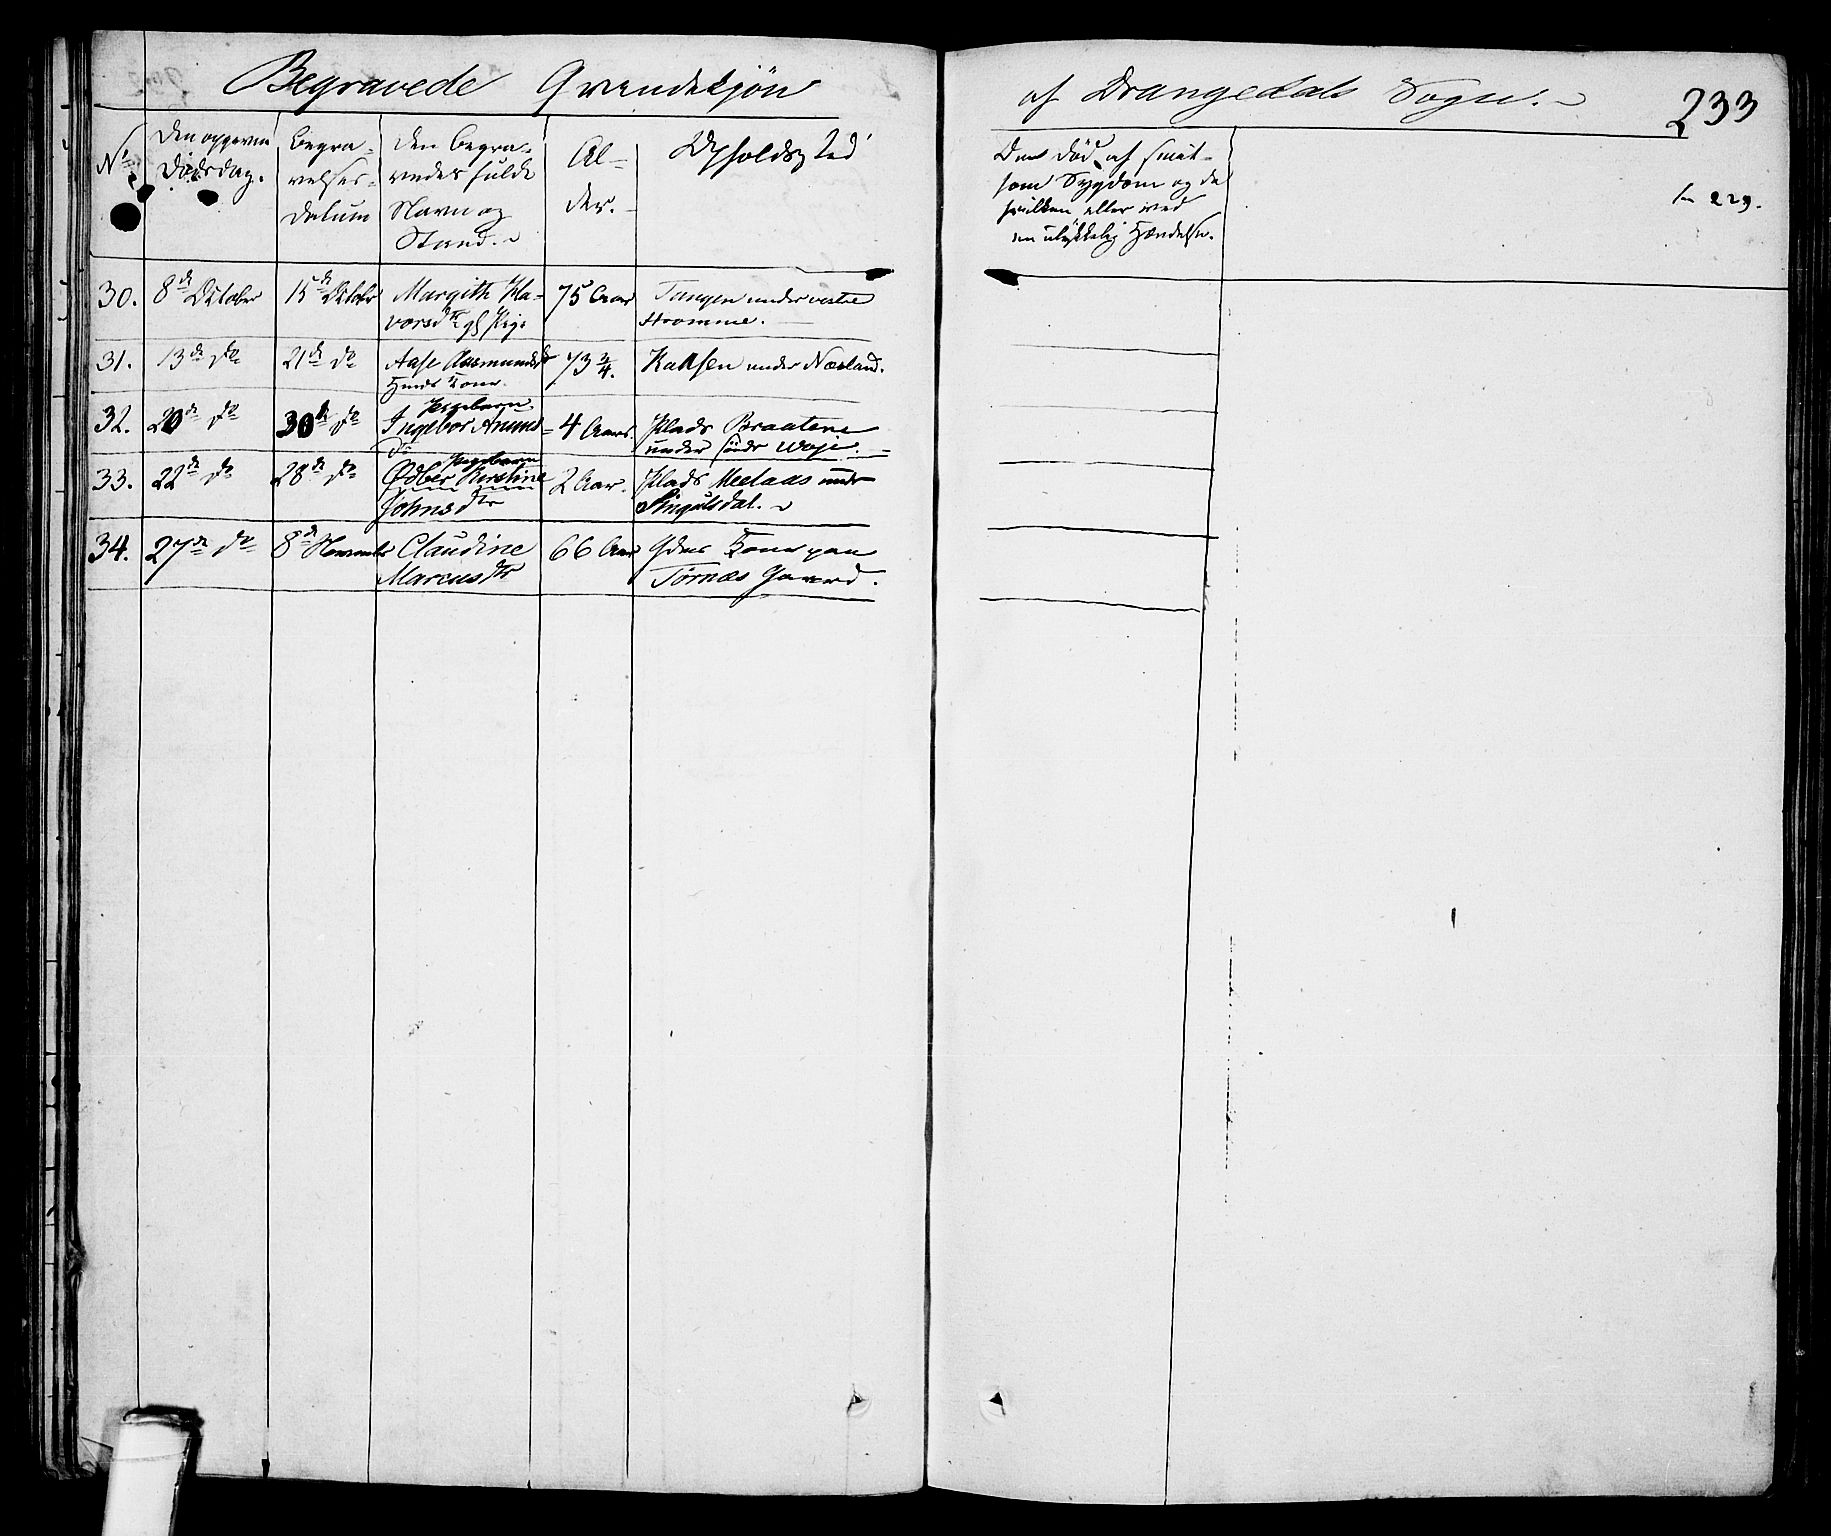 Begravede Qvindekjön
af Drangedals Sogn.
233
No
Den opgivne
Dødsdag.
Begra-
velses-
Datum
Den begra-
vedes fulde
Navn og
Stand.
Al-
der.
Opholdssted
Om død af smit-
som Sygdom og da
hvilken eller ved
en ulykkelig Hændelse.
229.
30.
8de October
15de October
Margith Ha-
vorsdtr
75 Aar
Tangen under vestre
Stromme.
31.
13de Do
21de Do
Aase Aasmundsdtr
Huusm Kone.
73 3/4.
under Næsland.
32.
20de Do
30de Do
Pigebarn
Ingebor Anund-
Dr
4 Aar.
Plads Braatene
under
33.
22de Do
28de Do
Pigebarn
Ødber Kirstine
Johnsdtr
2 Aar.
Plads Meelaas under
Singulsdal.
34.
27de Do
8de November
Claudine
Marcusdtr
66 Aar
Gdms Kone paa
Törnæs Gaard.